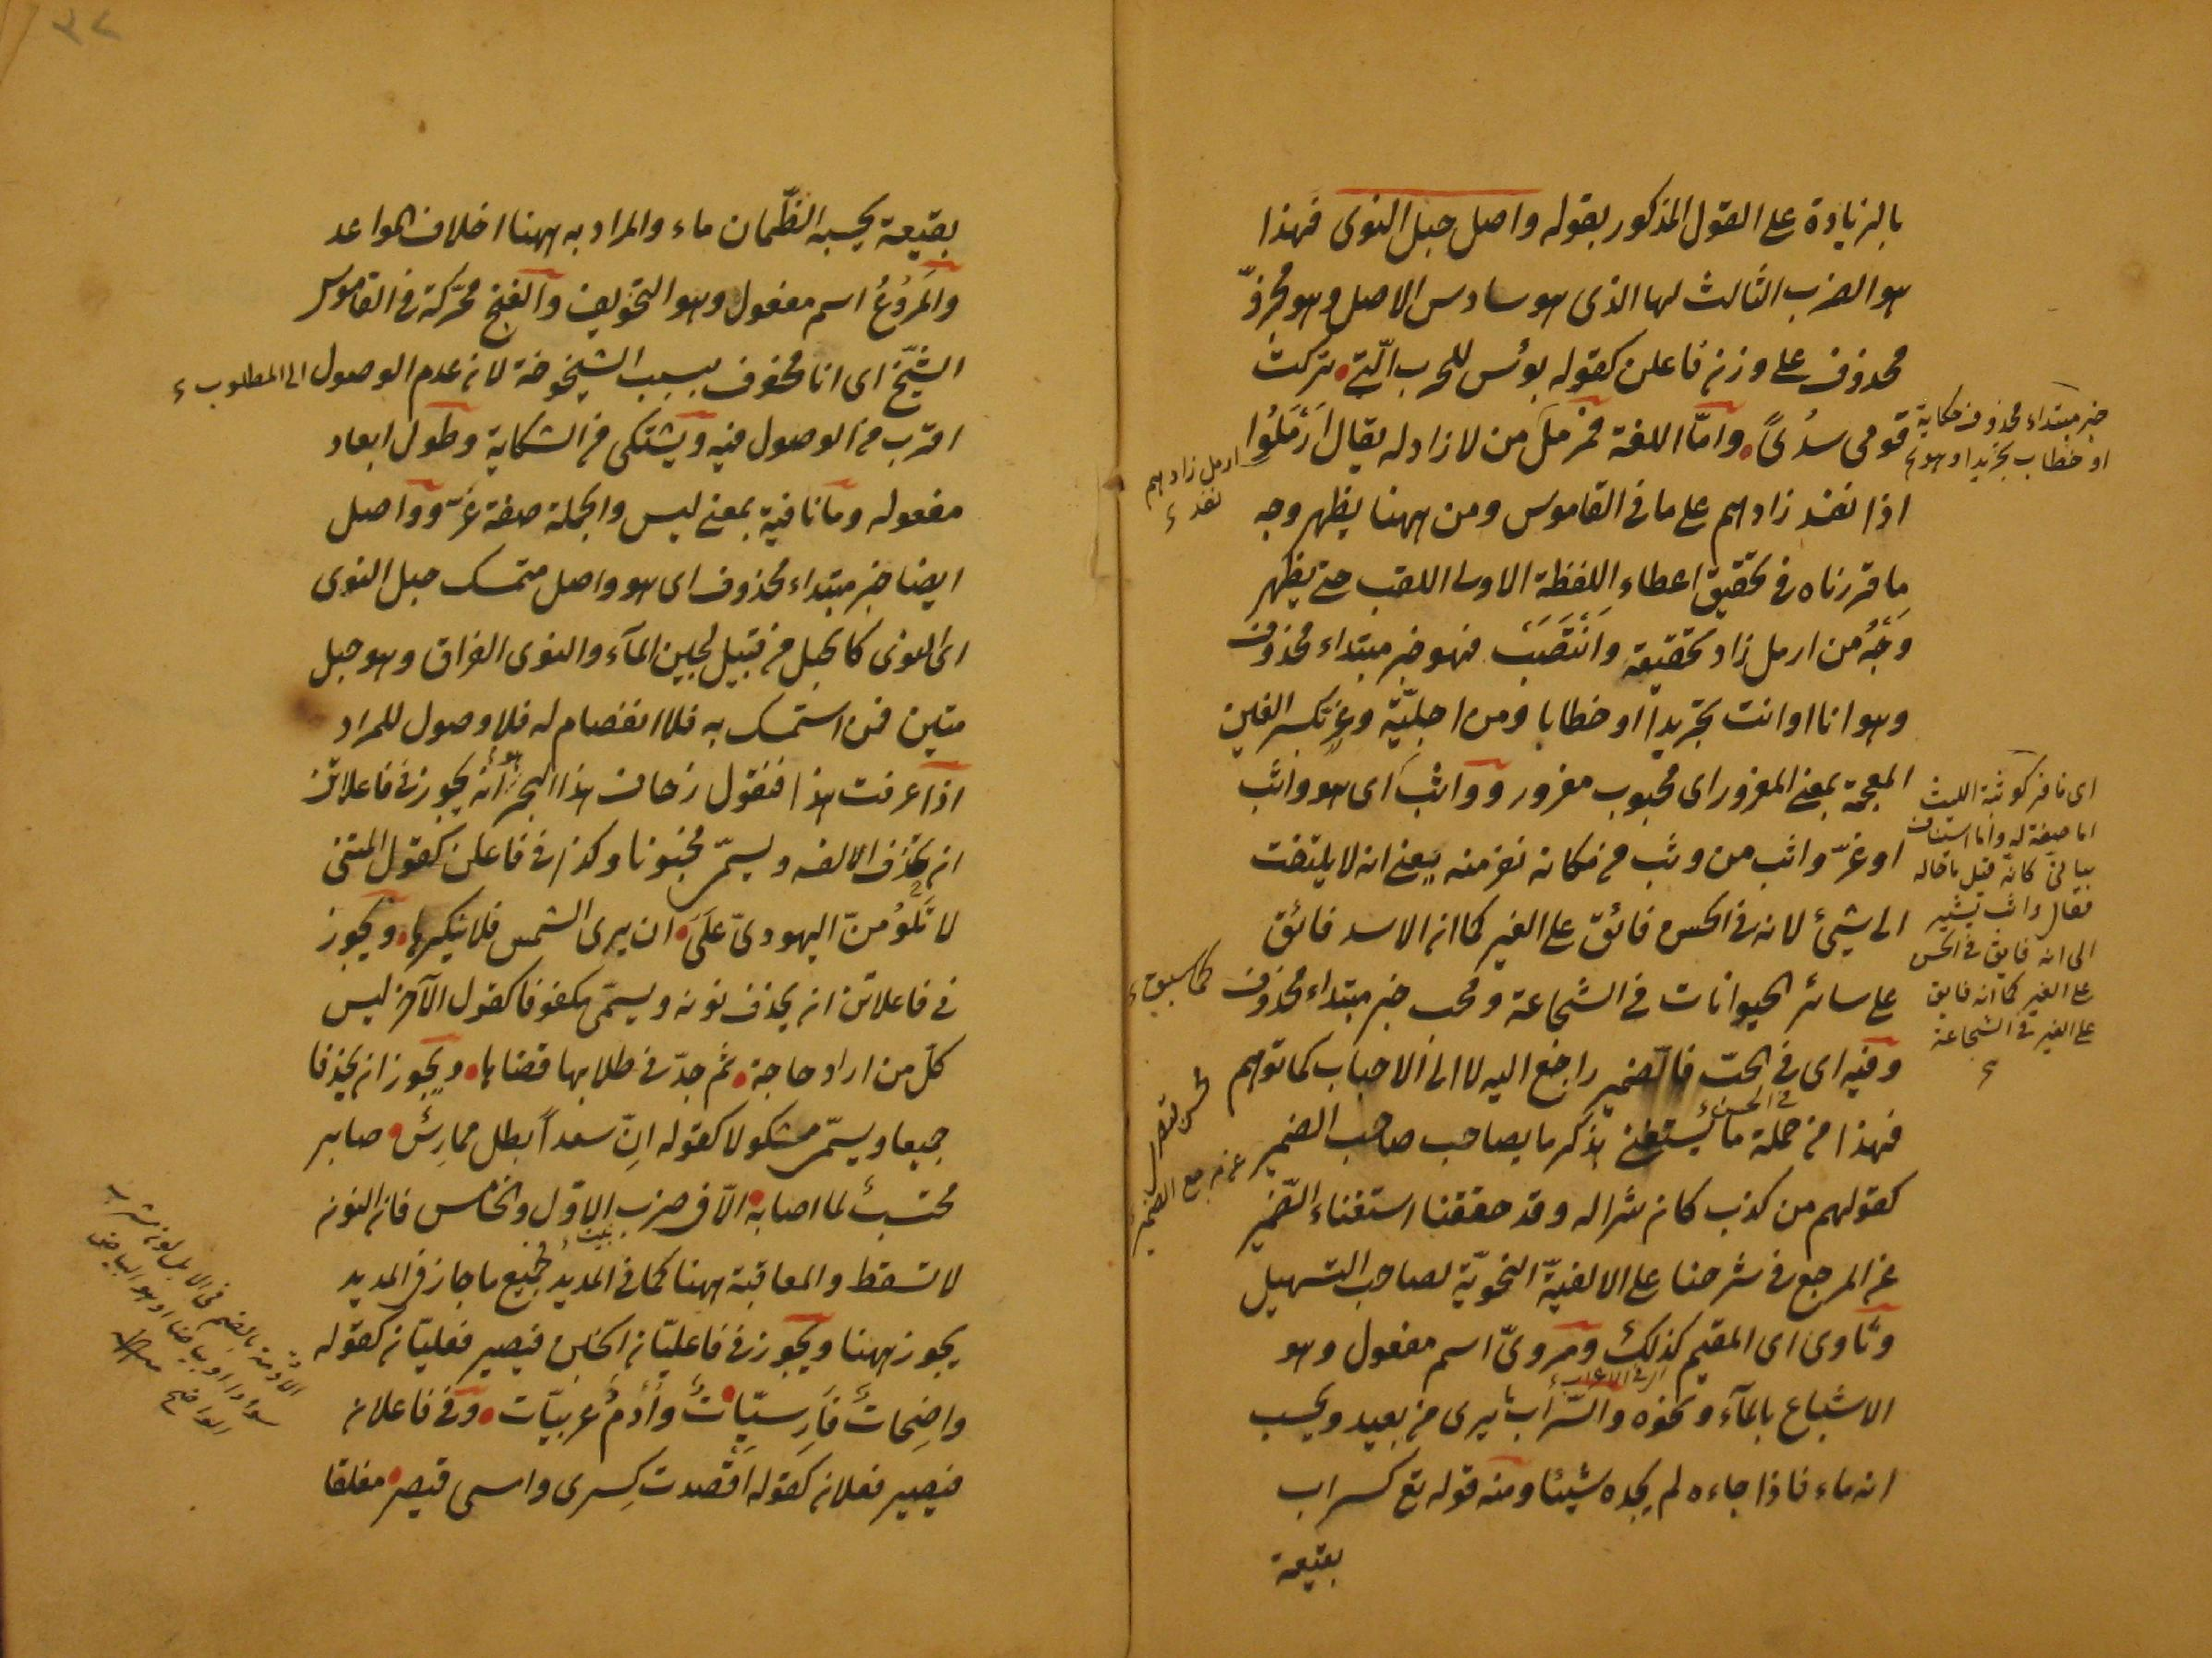 بالزيادة على القول المذكور بقوله واصل حبل النوى فهذا
هو الضرب الثالث لها الذى هو سادس الاصل وهو مجزوّ
محذوف على وزن فاعلن كقوله بوئس للحرب الّتى تركت
قومى سدًى وامّا اللغة فمرمل من لا زاد له يقال اَرْمَلُوا
اذا نفد زادهم على ما فى القاموس ومن ههنا يظهر وجه
ما قررناه فى تحقيق اعطاء اللفظة الاولى اللقب حتى يظهر
وَجْهُ من ارمل زاد تحقيقه وَانْتَصَبَ فهو خبر مبتداء محذوف
وهو انا او انت تجريدا او خطابا ومن اجليّة وغرّ بكسر الغين
المعجمة بمعنى المغرور اى محبوب مغرور وواثب اى هو واثب
او غرّ واثب من وثب من مكانه نفر منه يعنى انه لا يلتفت
الى شيئ لانه فى الحسن فائق على الغير كما ان الاسد فائق
على سائر الحيوانات فى الشجاعة ومحب خبر مبتداء محذوف كما سبق
وفيه اى فى الحبّ فالضمير راجع اليه لا الى الاحباب كما توهم
فهذا من جملة ما يستغنى بذكر ما يصاحب صاحب الضمير
كقولهم من كذب كان شرا له وقد حققنا استغناء الضمير
عن المرجع فى شرحنا على الالفيّة النحويّة لصاحب التسهيل
وثاوى اى المقيم كذلك ومروىّ اسم مفعول وهو
الاشباع بالمآء ونحوه والسّراب ما يرى من بعيد ويحسب
انه ماء فاذا جاءه لم يجده شيئا ومنه قوله تع كسراب
بقيعة
خبر مبتداء محذوف حكاية
او خطاب تجريدا وهو
ارمل زادهم
نفد
اى نافر كوثبة الليث
اما صفة له واما استيناف
بيانى كانه قيل ما حاله
فقال واثب يشير
الى انه فايق فى الحسن
على الغير كما انه فايق
على الغير فى الشجاعة
فى الحسن
عن مرجع الضمير
فى الاعراب
بقيعة يحسبه الظّمان ماء والمراد به ههنا اخلاف المواعد
والمَرُوعُ اسم مفعول وهو التخويف والفنخ محرّكة فى القاموس
الشيّخ اى انا مخوف بسبب الشيخوخة لان عدم الوصول الى المطلوب
اقرب من الوصول فيه ويشتكى من الشكاية وطول ابعاد
مفعوله وما نافية بمعنى ليس والجملة صفة غرّ وواصل
ايضا خبر مبتداء محذوف اى هو واصل متمسك حبل النوى
اى النوى كالحبل من قبيل لجين المآء والنوى الفراق وهو حبل
متين فمن استمسك به فلا انفصام له فلا وصول للمراد
اذا عرفت هذا فنقول زحاف هذا البحر هو أنه يجوز فى فاعلاتن
ان يحذف الالف ويسمّى مخبونا وكذا فى فاعلن كقول المتنى
لا تَلُومُنّ اليهودىّ عَلَى ان يرى الشمس فلا ينكرها ويجوز
فى فاعلاتن ان يحذف نونه ويسمّى مكفوفا كقول الآخر ليس
كلّ من اراد حاجة ثم جدّ فى طلابها قضاها ويجوز ان يحذفا
جميعا ويسمّى مشكولا كقوله اِنّ سعداً بطل ممارِسٌ صابر
محتسبٌ لما اصابه الّا فى ضرب البيت الاوّل والخامس فان النون
لا تسقط والمعاقبة ههنا كما فى المديد فجميع ما جاز فى المديد
يجوز ههنا ويجوز فى فاعليّان الخبن فيصير فعليّان كقوله
واضِحاتٌ فَارِسيّاتٌ وأُدْمٌ عربيّات وفى فاعلان
فيصير فعلان كقوله اَقْصدت كِسرى وامسى قيصر مغلقا
الادمة بالضم فى الابل لون مشرب
سوادا او بياضا او هو البياض
الواضح